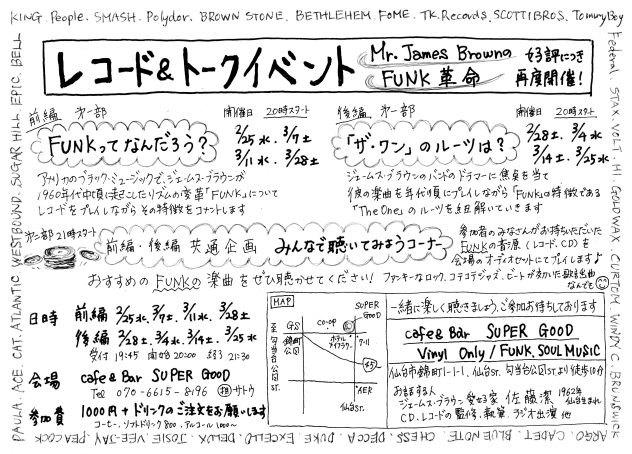 KING. People. SMASH. Polydor. BROWN STONE. BETHLEHEM. FOME. TK.Records. SCOTTI BROS. TommyBoy
Federal. STAX. VOLT. HI. GOLDWAX. CURTOM. WINDY C. BRUNSWICK
ARGO. CADET. BLUE NOTE. CHESS. DECCA. DUKE. EXCELLO. DELUX. JOSIE. VEE-JAY. PEACOCK
PAULA. ACE. CAT. ATLANTIC. WESTBOUND. SUGAR HILL. EPIC. BELL
レコード&トークイベント
Mr. James Brownの
FUNK 革命
好評につき
再度開催!
前編 第一部
開催日 20時スタート
FUNKってなんだろう?
2/25水. 3/7土
3/11水. 3/28土
アメリカのブラック・ミュージックで、ジェームス・ブラウンが
1960年代中頃に起こしたリズムの変革"FUNK"について
レコードをプレイしながらその特徴をコメントします
後編 第一部
開催日 20時スタート
「ザ・ワン」のルーツは?
2/28土. 3/4水
3/14土. 3/25水
ジェームス・ブラウンのバンドのドラマーに焦点を当て
彼の楽曲を年代順にプレイしながら「FUNK」の特徴である
"The One"のルーツを紐解いていきます
第二部 21時スタート
前編・後編 共通企画 みんなで聴いてみようコーナー
参加者のみなさんがお持ちいただいた
FUNKの音源(レコード、CD)を
会場のオーディオセットにてプレイしますよ
おすすめのFUNKの楽曲をぜひ聴かせてください!
ファンキーなロック、コテコテジャズ、ビートが効いた歌謡曲
なんでも
日時 前編 2/25水. 3/7土. 3/11水. 3/28土
後編 2/28土. 3/4水. 3/14土. 3/25水
受付 19:45 開始 20:00 終了 21:30
会場 cafe & Bar SUPER GOOD
Tel 070-6615-8196 担 サトウ
参加費 1000円+ドリンクのご注文をお願いします
コーヒー、ソフトドリンク 800、アルコール 1000~
MAP
SUPER
GOOD
co-op
至
勾当台公園
GS
錦町
公園
ホテル
7-11
45
AER
仙台St.
一緒に楽しく聴きましょう、ご参加お待ちしております
cafe & Bar SUPER GOOD
Vinyl Only / FUNK, SOUL MUSIC
仙台市錦町1-1-1、仙台St. 勾当台公園Stより徒歩10分
お話する人
ジェームス・ブラウン愛好家 佐藤潔
1962年
仙台生まれ
CD、レコードの監修、執筆、ラジオ出演他